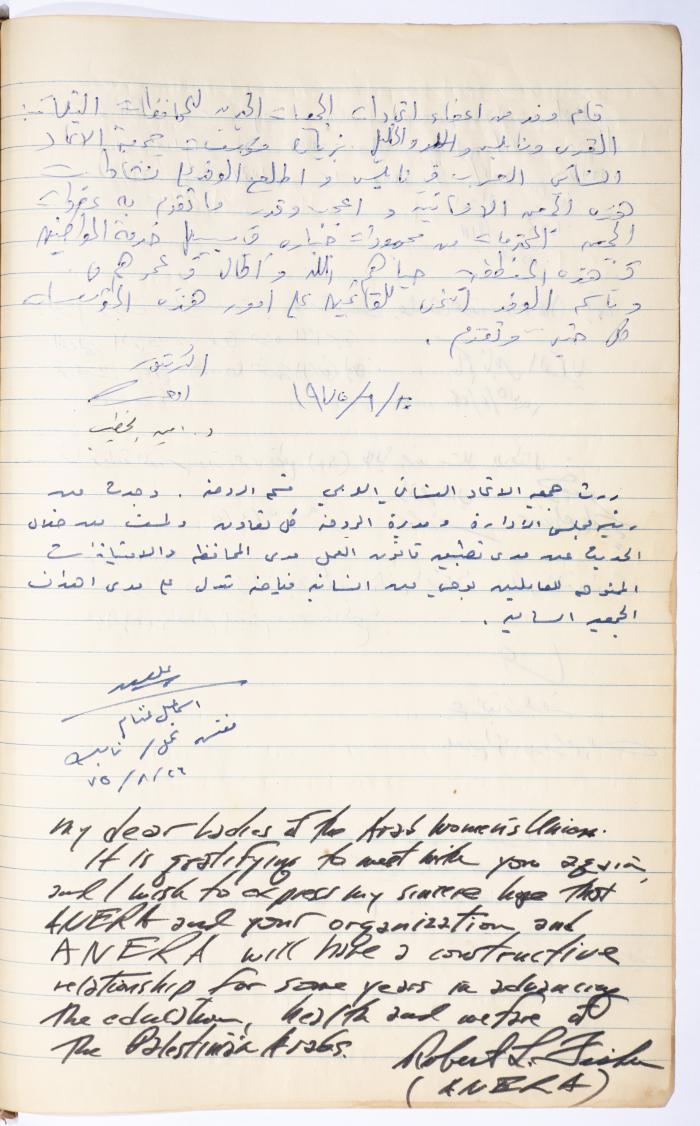 قام وفد من اعضاء اتحادات الجمعيات الخيرية لمحافظات الثلاث
القدس ونابلس والخليل بزيارة مؤسسات جمعية الاتحاد
النسائي العربي في نابلس و اطلع الوفد على نشاطات
هذه الجمعية الانسانية و اعجب وقدر ما تقوم به عضوات
الجمعية المحترمات من مجهودات جبارة في سبيل خدمة المواطنين
في هذه المنطقة حياهم الله و اطال في عمرهم
و باسم الوفد اتمنى للقائمين على امور هذه المؤسسات
كل خير وتقدم .
الدكتور
امين
د. امين الخطيب
زرت جمعية الاتحاد النسائي العربي قسم الروضة . وجدت من
رئيسة مجلس الادارة و مديرة الروضة كل تعاون ولمست من خلال
الحديث عن مدى تطبيق قانون العمل مدى المحافظة والامتيازات
الممنوحة للعاملين بوحي من انسانية فياضة تدل على مدى اهداف
الجمعية السامية .
مفتش عمل / نابلس
٧٥/٨/٢٦
My dear Ladies of the Arab Women's Union.
It is gratifying to meet with you again,
and I wish to express my sincere hope that
ANERA and your organization, and
ANERA will have a constructive
relationship for some years in advancing
the education, health and welfare of
the Palestinian Arabs.
Robert L. Fisher
(ANERA)